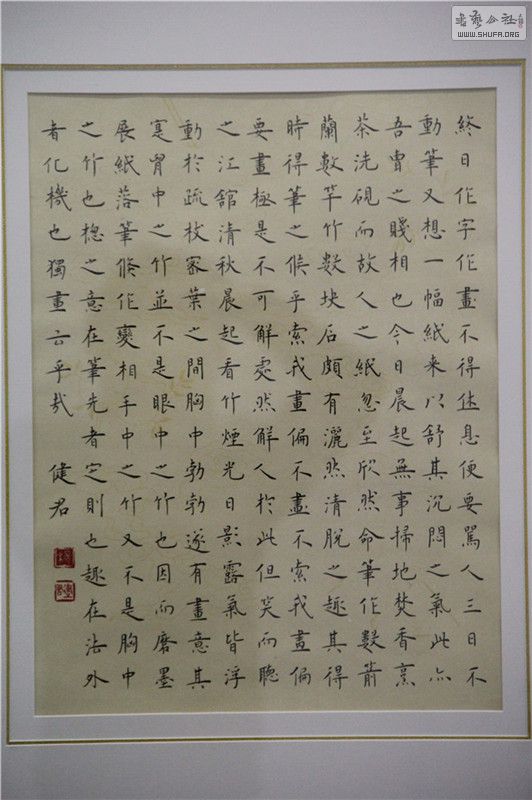 終日作字作畫不得休息便要罵人三日不
動筆又想一幅紙来以舒其沉悶之氣此亦
吾曹之賤相也今日晨起無事掃地焚香烹
茶洗硯而故人之紙忽至欣然命筆作數箭
蘭數竿竹數块石頗有灑然清脫之趣其得
時得筆之候乎索我畫偏不畫不索我畫偏
要畫極是不可解處然解人於此但笑而聽
之江舘清秋晨起看竹煙光日影露氣皆浮
動於疏枝密葉之間胸中勃勃遂有畫意其
寔胷中之竹並不是眼中之竹也因而磨墨
展紙落筆倏作變相手中之竹又不是胸中
之竹也總之意在筆先者定則也趣在法外
者化機也獨畫云乎哉 健君
書藝公社
WWW.SHUFA.ORG